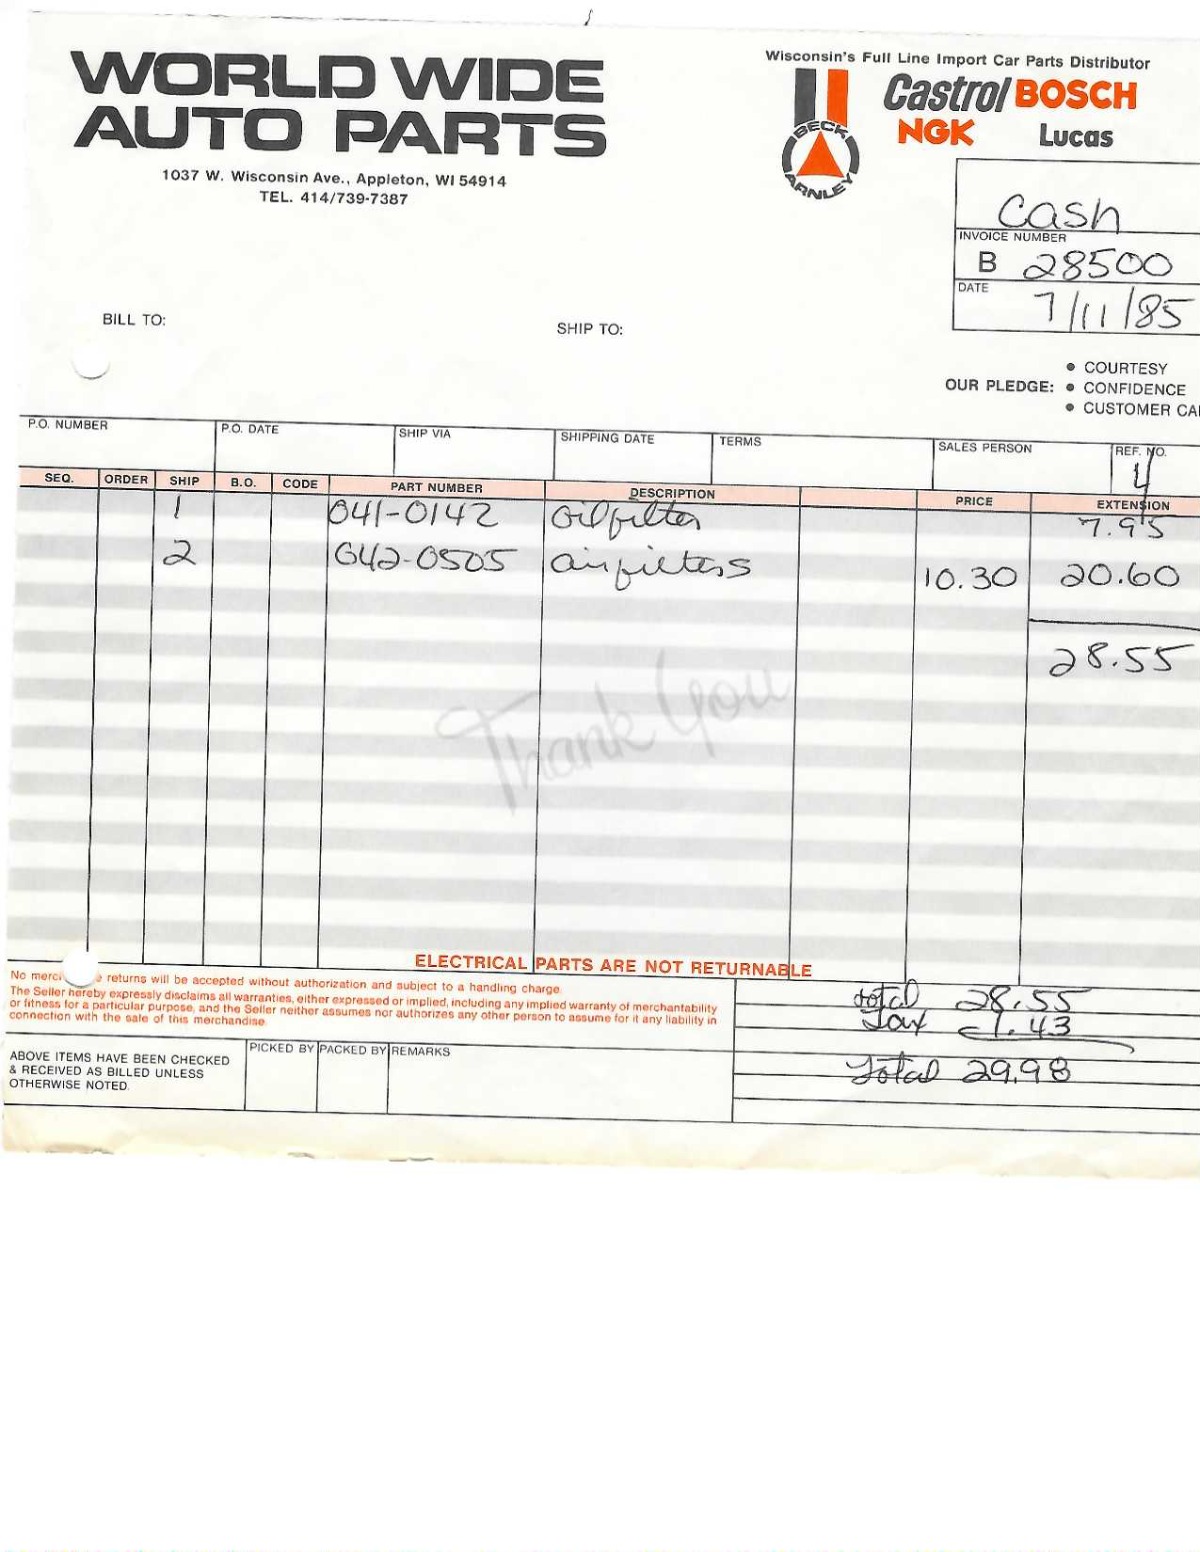 WORLD WIDE
AUTO PARTS
1037 W. Wisconsin Ave., Appleton, WI 54914
TEL. 414/739-7387
Wisconsin's Full Line Import Car Parts Distributor
Castrol BOSCH
NGK Lucas
BECK
ARNLEY
Cash
INVOICE NUMBER
B 28500
DATE
7/11/85
BILL TO:
SHIP TO:
OUR PLEDGE:
• COURTESY
• CONFIDENCE
• CUSTOMER CA
P.O. NUMBER P.O. DATE SHIP VIA SHIPPING DATE TERMS SALES PERSON REF. NO.
4
SEQ. ORDER SHIP B.O. CODE PART NUMBER DESCRIPTION PRICE EXTENSION
1 041-0142 oil filter 7.95
2 042-0505 air filters 10.30 20.60
28.55
Thank You
ELECTRICAL PARTS ARE NOT RETURNABLE
No merc e returns will be accepted without authorization and subject to a handling charge.
The Seller hereby expressly disclaims all warranties, either expressed or implied, including any implied warranty of merchantability
or fitness for a particular purpose, and the Seller neither assumes nor authorizes any other person to assume for it any liability in
connection with the sale of this merchandise.
total 28.55
Tax 1.43
Total 29.98
ABOVE ITEMS HAVE BEEN CHECKED
& RECEIVED AS BILLED UNLESS
OTHERWISE NOTED.
PICKED BY PACKED BY REMARKS